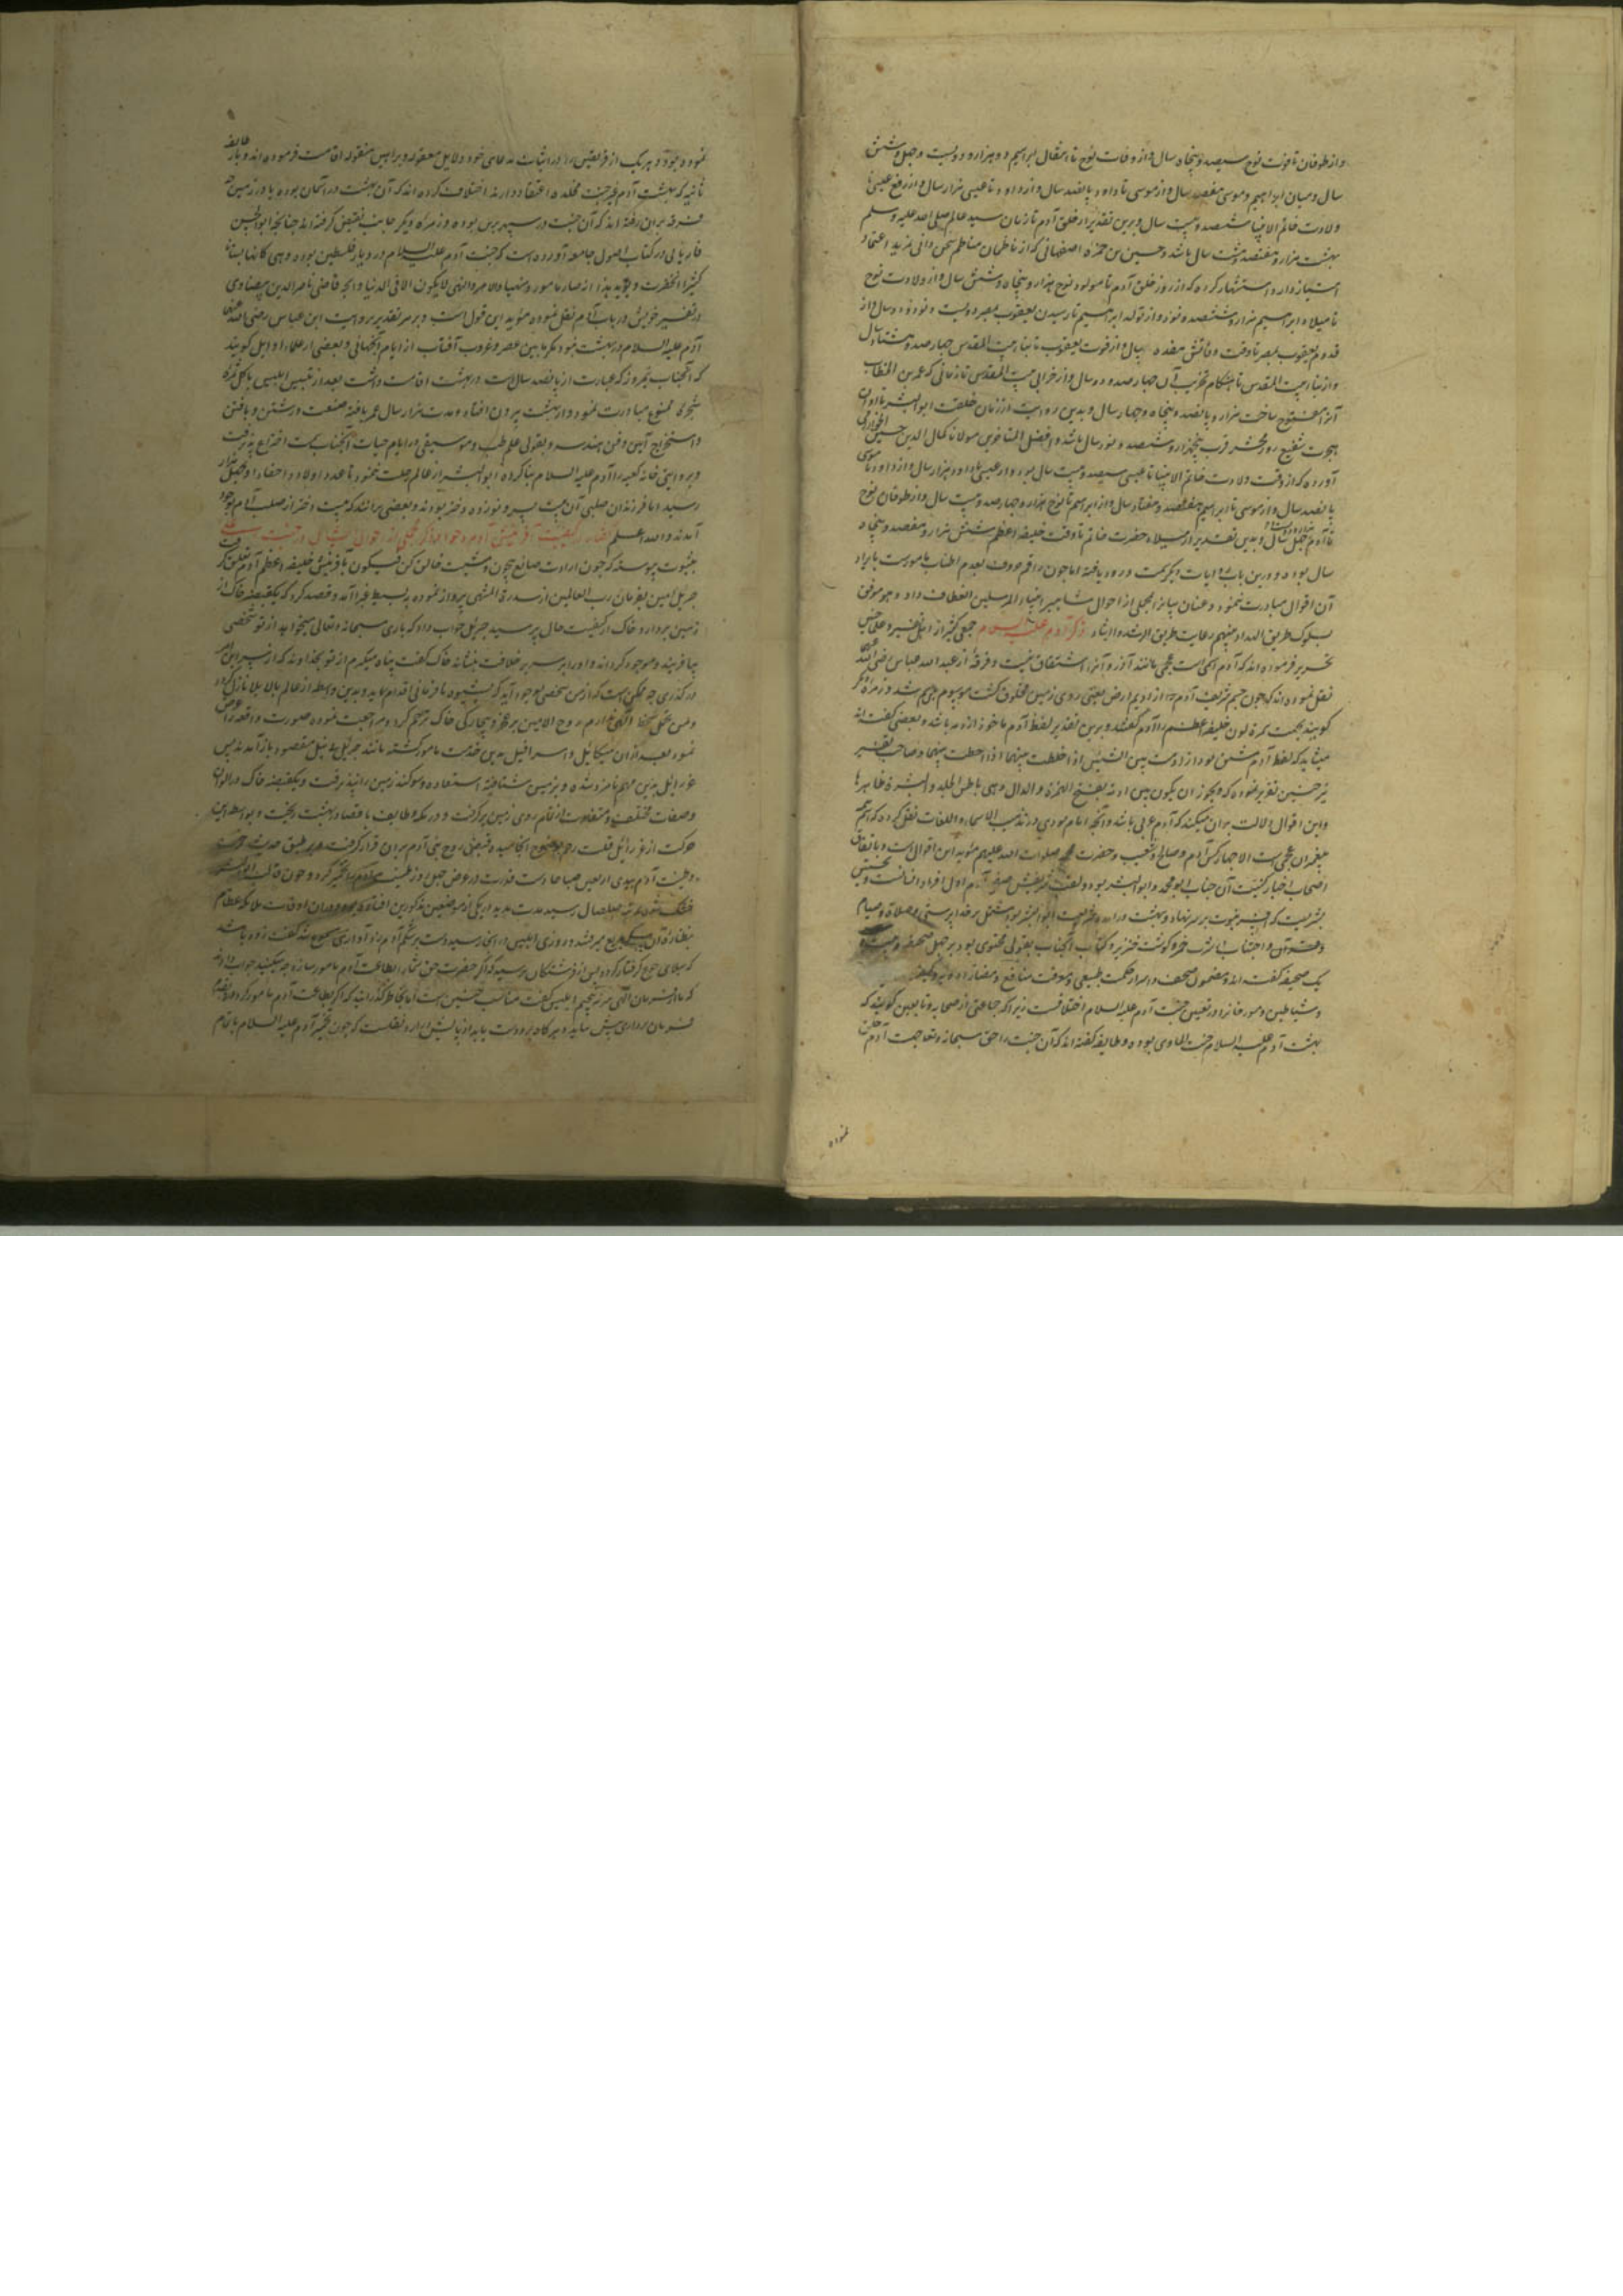 و از طوفان تا فوت نوح سیصد و پنجاه سال و از وفات نوح تا انتقال ابراهیم دو هزار و دویست و چهل و شش
سال و میان ابراهیم و موسی هفتصد سال و از موسی تا داود پانصد سال و از داود تا عیسی هزار سال و از رفع عیسی تا
ولادت خاتم الانبیا ششصد و بیست سال و برین تقدیر از خلق آدم تا زمان سید عالم صلی الله علیه و سلم
هشت هزار و هفتصد و شصت سال باشد و حسین بن حمزه اصفهانی که از ناظمان مناظم سخن دانی مزید اعتماد
امتیاز دارد استشهاد کرده که از روز خلق آدم تا مولود نوح هزار و پنجاه و شش سال و از ولادت نوح
تا میلاد ابراهیم هزار و ششصد و نود و از تولد ابراهیم تا رسیدن یعقوب بمصر دویست و نود و دو سال و از
قدوم یعقوب بمصر تا وقت وفاتش هفده سال و از فوت یعقوب تا بناء بیت المقدس چهارصد و هشتاد سال
و از بناء بیت المقدس تا هنگام تخریب آن چهارصد و ده سال و از خرابی بیت المقدس تا زمانی که عمر بن الخطاب
آنرا مفتوح ساخت هزار و پانصد و پنجاه و چهار سال و بدین روایت از زمان خلقت ابو البشر تا اوان
هجرت شفیع روز محشر قرب پنجهزار و ششصد و نود سال باشد و افضل المتاخرین مولانا کمال الدین حسین الخوارزمی
آورده که از وقت ولادت خاتم الانبیا تا عیسی سیصد و بیست سال بود و از عیسی تا داود هزار سال و از داود تا موسی
پانصد سال و از موسی تا ابراهیم هفتصد و هفتاد سال و از ابراهیم تا نوح هزار و چهارصد و بیست سال و از طوفان نوح
تا آدم سال و بدین تقدیر از میلاد حضرت خاتم تا وقت خلیفه اعظم شش هزار و هفتصد و پنجاه
سال بوده و درین باب روایات دیگر سمت ورود یافته اما چون راقم حروف بعدم اطناب مامورست بایراد
آن اقوال مبادرت ننمود و عنان بیان بمجملی از احوال مشاهیر انبیاء المرسلین انعطاف داد و هو موفق
بسلوک طریق السداد منهم رعایت طریق الارشاد ذکر آدم علیه السلام جمعی کثیر از اهل تفسیر و علی
تحریر فرموده اند که آدم اسمی است عجمی مانند آذر و آنرا اشتقاق نیست و فرقه از عبد الله عباس رضی الله عنهما
نقل نموده اند که چون جسم شریف آدم از ادیم ارض یعنی روی زمین مخلوق گشت موسوم بآدم شد و زمره دیگر
گویند بجهت سمره لون خلیفه اعظم را آدم گفتند و برین تقدیر لفظ آدم ماخوذ از ادمه باشد و بعضی گفته اند
میشاید که لفظ آدم مشتق بود از ادمت بین الشیئین اذا خلطت بینهما و صاحب تفسیر
نیز چنین تقریر نموده که و یجوز ان یکون من ادمه بفتح الهمزة و الدال و هی باطن الجلد و البشرة ظاهرها
و این اقوال دلالت بر آن میکند که آدم عربی باشد و آنچه امام نووی در تهذیب الاسماء و اللغات نقل کرده که اسم همه
پیغمبران عجمی است الا چهار کس آدم و صالح و شعیب و حضرت محمد صلوات الله علیهم مؤید این اقوال است و باتفاق
اصحاب اخبار کنیت آن جناب ابو محمد و ابو البشر بوده و لقب شریفش صفی آدم اول افراد انسانست و نخستین
بشریست که افسر نبوت بر سر نهاد و بهشت درآمد و شریعت ابو البشر بود مشتمل بر خدا پرستی و صلاة و صیام
و اجتناب از شرب خمر و گوشت خنزیر و کتاب آنجناب بقولی محتوی بود بر چهل صحیفه و بیست و
یک صحیفه گفته اند و مضمون صحف در اسرار حکمت طبیعی و معرفت منافع و مضار ادویه و کیفیت
و شیاطین و مورخان را در تعیین جنت آدم علیه السلام اختلافست زیرا که جماعتی از صحابه و تابعین گویند که
بهشت آدم علیه السلام جنت الماوی بوده و طایفه گفته اند که آن جنت را حق سبحانه و تعالی بجهت آدم خلق
نموده
نموده بود و هر یک از فریقین را در اثبات مدعای خود دلایل معقوله و براهین منقوله اقامت فرموده اند و باز طایفه
ثانیه که بهشت آدم غیر جنت مخلده اعتقاد دارند اختلاف کرده اند که آن بهشت در آسمان بوده یا در زمین
فرقه بر آن رفته اند که آن جنت در سپهر برین بوده و زمره دیگر جانب نقیض گرفته اند چنانچه ابو الحسن
فاریابی در کتاب اصول جامعه آورده است که جنت آدم علیه السلام در دیار فلسطین بوده و هی کانها بستانا
کثیر الخضرت و یؤید هذا انه صار مامورا و منهیا و الامر و النهی لا یکون الا فی الدنیا و آنچه قاضی ناصر الدین بیضاوی
در تفسیر خویش در باب آدم نقل نموده مؤید این قول است و بر هر تقدیر بروایت ابن عباس رضی الله عنهما
آدم علیه السلام در بهشت نبود مگر ما بین عصر و غروب آفتاب از ایام آنجهانی و بعضی از علماء اوایل گویند
که آنجناب نیمروز که عبارت از پانصد سال است در بهشت اقامت داشت بعد از تلبیس ابلیس باکل ثمره
شجره ممنوع مبادرت نمود و از بهشت بیرون افتاد و مدت هزار سال عمر یافته صنعت رشتن و بافتن
و استخراج آهن و فن هندسه و بقولی علم طب و موسیقی در ایام حیات آنجناب سمت اختراع پذیرفت
و بروایتی خانه کعبه را آدم علیه السلام بنا کرده ابو البشر از عالم رحلت ننمود تا عدد اولاد و احفاد او بچهل هزار
رسید اما فرزندان صلبی آن بیست پسر و نوزده دختر بودند و بعضی برانند که بیست دختر از صلب آدم بوجود
آمدند و الله اعلم گفتار در کیفیت آفرینش آدم و حوا و ذکر مجملی از احوال ایشان در جنت
بثبوت پیوسته که چون ارادت صانع بیچون و مشیت خالق کن فیکون بآفرینش خلیفه اعظم آدم تعلق گرفت
جبریل امین بفرمان رب العالمین از سدرة المنتهی پرواز نموده بر بسیط غبرا آمد و قصد کرد که یکقبضه خاک از
زمین بردارد خاک از کیفیت حال پرسید جبرئیل جواب داد که باری سبحانه و تعالی میخواهد از تو شخصی
بیافریند و موجود گرداند و او را بر سریر خلافت بنشاند خاک گفت پناه میگیرم از تو بخداوند که از سر این امر
در گذری چه ممکن است که از من شخصی بوجود آید که بشیوه نافرمانی اقدام نماید و بدین واسطه از عالم بالا بلا نازل گردد
و من تحمل سخط الهی ندارم روح الامین بر عجز و بیچارگی خاک ترحم کرده مراجعت نموده صورت واقعه را عرض
نمود بعد از آن میکائیل و اسرافیل بدین خدمت مامور گشته مانند جبرئیل بی نیل مقصود باز آمدند پس
عزرائیل بدین مهم نامزد شده و بزمین شتافته استعاده و سوگند زمین را نپذیرفت و یکقبضه خاک در الوان
و صفات مختلف و متفاوت از تمام روی زمین برگرفت و در مکه و طایف باقصاء بهشت ریخت و بواسطه این
حرکت از عزرائیل قلت رحم بوضوح انجامیده قبض روح بنی آدم بر آن قرار گرفت و بر طبق حدیث خمرت
طینت آدم بیدی اربعین صباحا دست قدرت در عرض چهل روز طینت آدم را تخمیر کرد و چون قالب ابو البشر
خشک شده بمرتبه صلصال رسید مدت مدید در یکی از موضعین مذکورین افتاده بود و در آن اوقات ملائکه عظام
بنظاره آن پیکر بدیع میرفتند و روزی ابلیس در آنجا رسید دست بر شکم آدم زد آوازی مسموع شد گفت زود باشد
که ببلای جوع گرفتار گردد پس از فرشتگان پرسید که اگر حضرت حق شما را بطاعت آدم مامور سازد چه میکنید جواب دادند
که ما از فرمان الهی سر نپیچیم ابلیس گفت مناسب چنین است اما بخاطر گذرانید که اگر بطاعت آدم مامور گردد
فرمان برداری پیش نیاید و هر گاه برو دست یابد از پایش درآرد و نقلست که چون تخمیر آدم علیه السلام باتمام